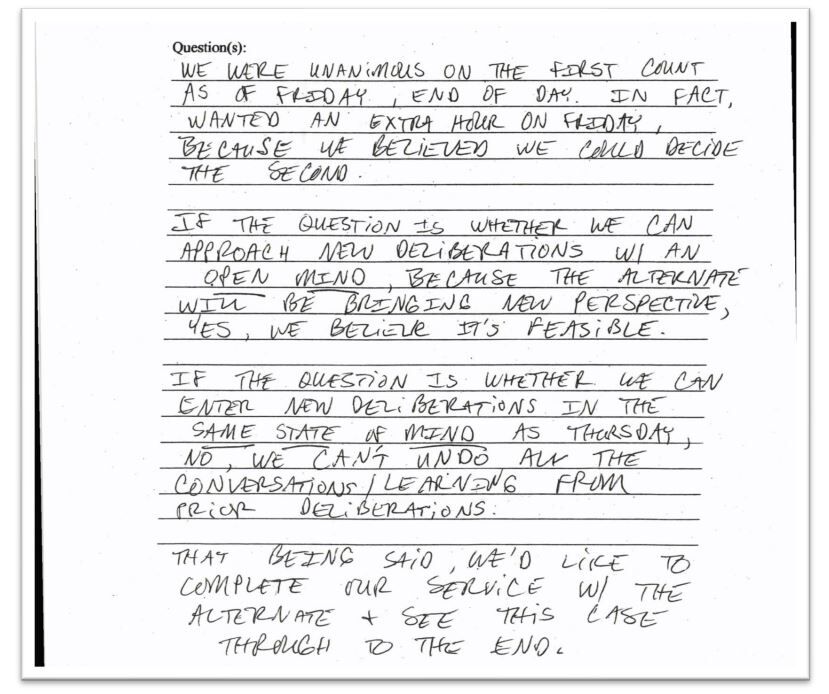 Question(s):
WE WERE UNANIMOUS ON THE FIRST COUNT
AS OF FRIDAY, END OF DAY. IN FACT,
WANTED AN EXTRA HOUR ON FRIDAY,
BECAUSE WE BELIEVED WE COULD DECIDE
THE SECOND.
IF THE QUESTION IS WHETHER WE CAN
APPROACH NEW DELIBERATIONS W/ AN
OPEN MIND, BECAUSE THE ALTERNATE
WILL BE BRINGING NEW PERSPECTIVE,
YES, WE BELIEVE IT'S FEASIBLE.
IF THE QUESTION IS WHETHER WE CAN
ENTER NEW DELIBERATIONS IN THE
SAME STATE OF MIND AS THURSDAY,
NO, WE CAN'T UNDO ALL THE
CONVERSATIONS/LEARNING FROM
PRIOR DELIBERATIONS.
THAT BEING SAID, WE'D LIKE TO
COMPLETE OUR SERVICE W/ THE
ALTERNATE + SEE THIS CASE
THROUGH TO THE END.